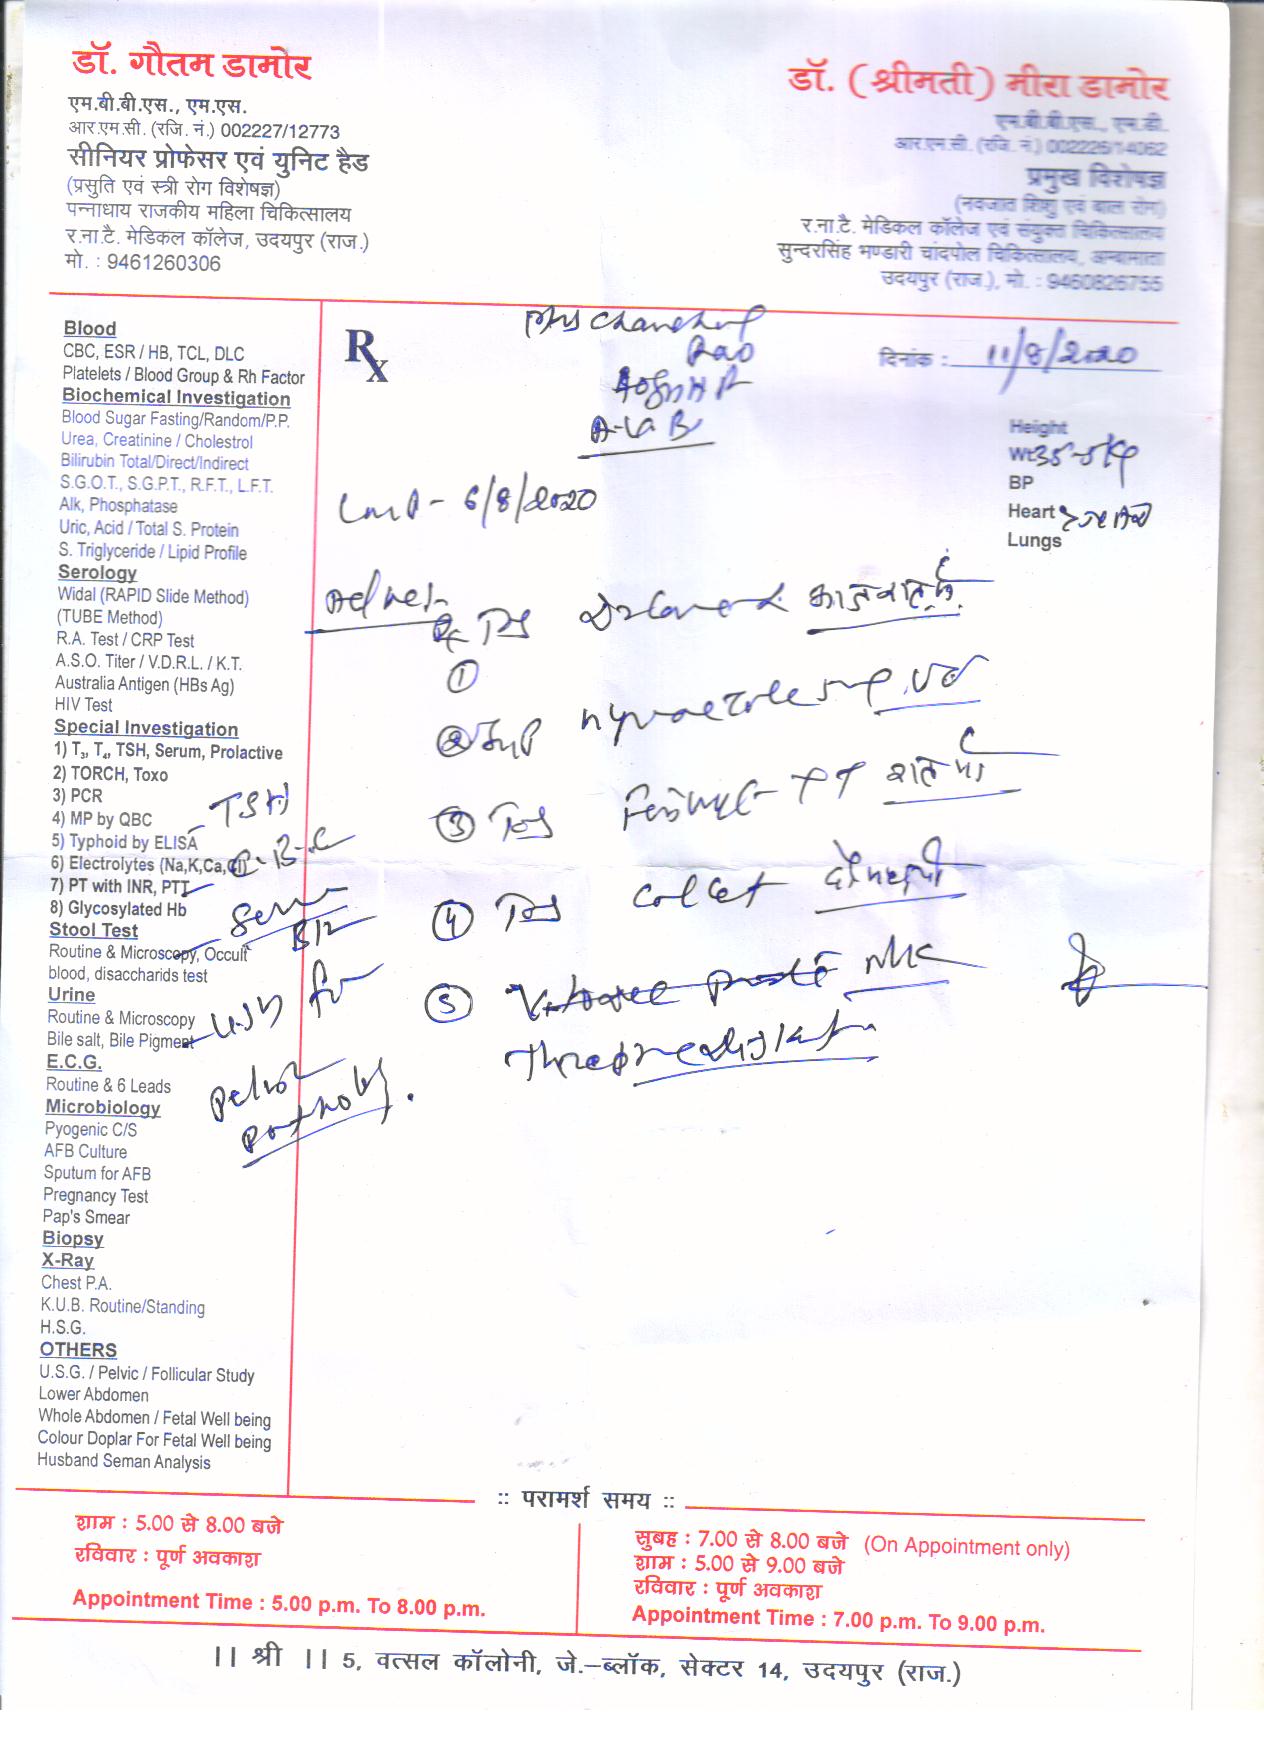 डॉ. गौतम डामोर
एम.बी.बी.एस., एम.एस.
आर.एम.सी. (रजि. नं.) 002227/12773
सीनियर प्रोफेसर एवं युनिट हैड
(प्रसुति एवं स्त्री रोग विशेषज्ञ)
पन्नाधाय राजकीय महिला चिकित्सालय
र.ना.टै. मेडिकल कॉलेज, उदयपुर (राज.)
मो. : 9461260306
डॉ. (श्रीमती) मीरा डामोर
एम.बी.बी.एस., एम.डी.
आर.एम.सी. (रजि. नं.) 002226/14062
प्रमुख विशेषज्ञ
(नवजात शिशु एवं बाल रोग)
र.ना.टै. मेडिकल कॉलेज एवं संयुक्त चिकित्सालय
सुन्दरसिंह भण्डारी चांदपोल चिकित्सालय, अम्बामाता
उदयपुर (राज.), मो. : 9460826755
Rx
Rao
दिनांक : 11/8/2020
Height
Wt
BP
Heart
Lungs
LMP - 6/8/2020
①
②
③
④
⑤
Blood
CBC, ESR / HB, TCL, DLC
Platelets / Blood Group & Rh Factor
Biochemical Investigation
Blood Sugar Fasting/Random/P.P.
Urea, Creatinine / Cholestrol
Bilirubin Total/Direct/Indirect
S.G.O.T., S.G.P.T., R.F.T., L.F.T.
Alk, Phosphatase
Uric, Acid / Total S. Protein
S. Triglyceride / Lipid Profile
Serology
Widal (RAPID Slide Method)
(TUBE Method)
R.A. Test / CRP Test
A.S.O. Titer / V.D.R.L. / K.T.
Australia Antigen (HBs Ag)
HIV Test
Special Investigation
1) T3, T4, TSH, Serum, Prolactive
2) TORCH, Toxo
3) PCR
4) MP by QBC
5) Typhoid by ELISA
6) Electrolytes (Na,K,Ca,Cl)
7) PT with INR, PTT
8) Glycosylated Hb
Stool Test
Routine & Microscopy, Occult
blood, disaccharids test
Urine
Routine & Microscopy
Bile salt, Bile Pigment
E.C.G.
Routine & 6 Leads
Microbiology
Pyogenic C/S
AFB Culture
Sputum for AFB
Pregnancy Test
Pap's Smear
Biopsy
X-Ray
Chest P.A.
K.U.B. Routine/Standing
H.S.G.
OTHERS
U.S.G. / Pelvic / Follicular Study
Lower Abdomen
Whole Abdomen / Fetal Well being
Colour Doplar For Fetal Well being
Husband Seman Analysis
TSH
C.B.C
Serum
B12
USG for
Pelvic
Pathology.
:: परामर्श समय ::
शाम : 5.00 से 8.00 बजे
रविवार : पूर्ण अवकाश
Appointment Time : 5.00 p.m. To 8.00 p.m.
सुबह : 7.00 से 8.00 बजे (On Appointment only)
शाम : 5.00 से 9.00 बजे
रविवार : पूर्ण अवकाश
Appointment Time : 7.00 p.m. To 9.00 p.m.
|| श्री || 5, वत्सल कॉलोनी, जे.-ब्लॉक, सेक्टर 14, उदयपुर (राज.)